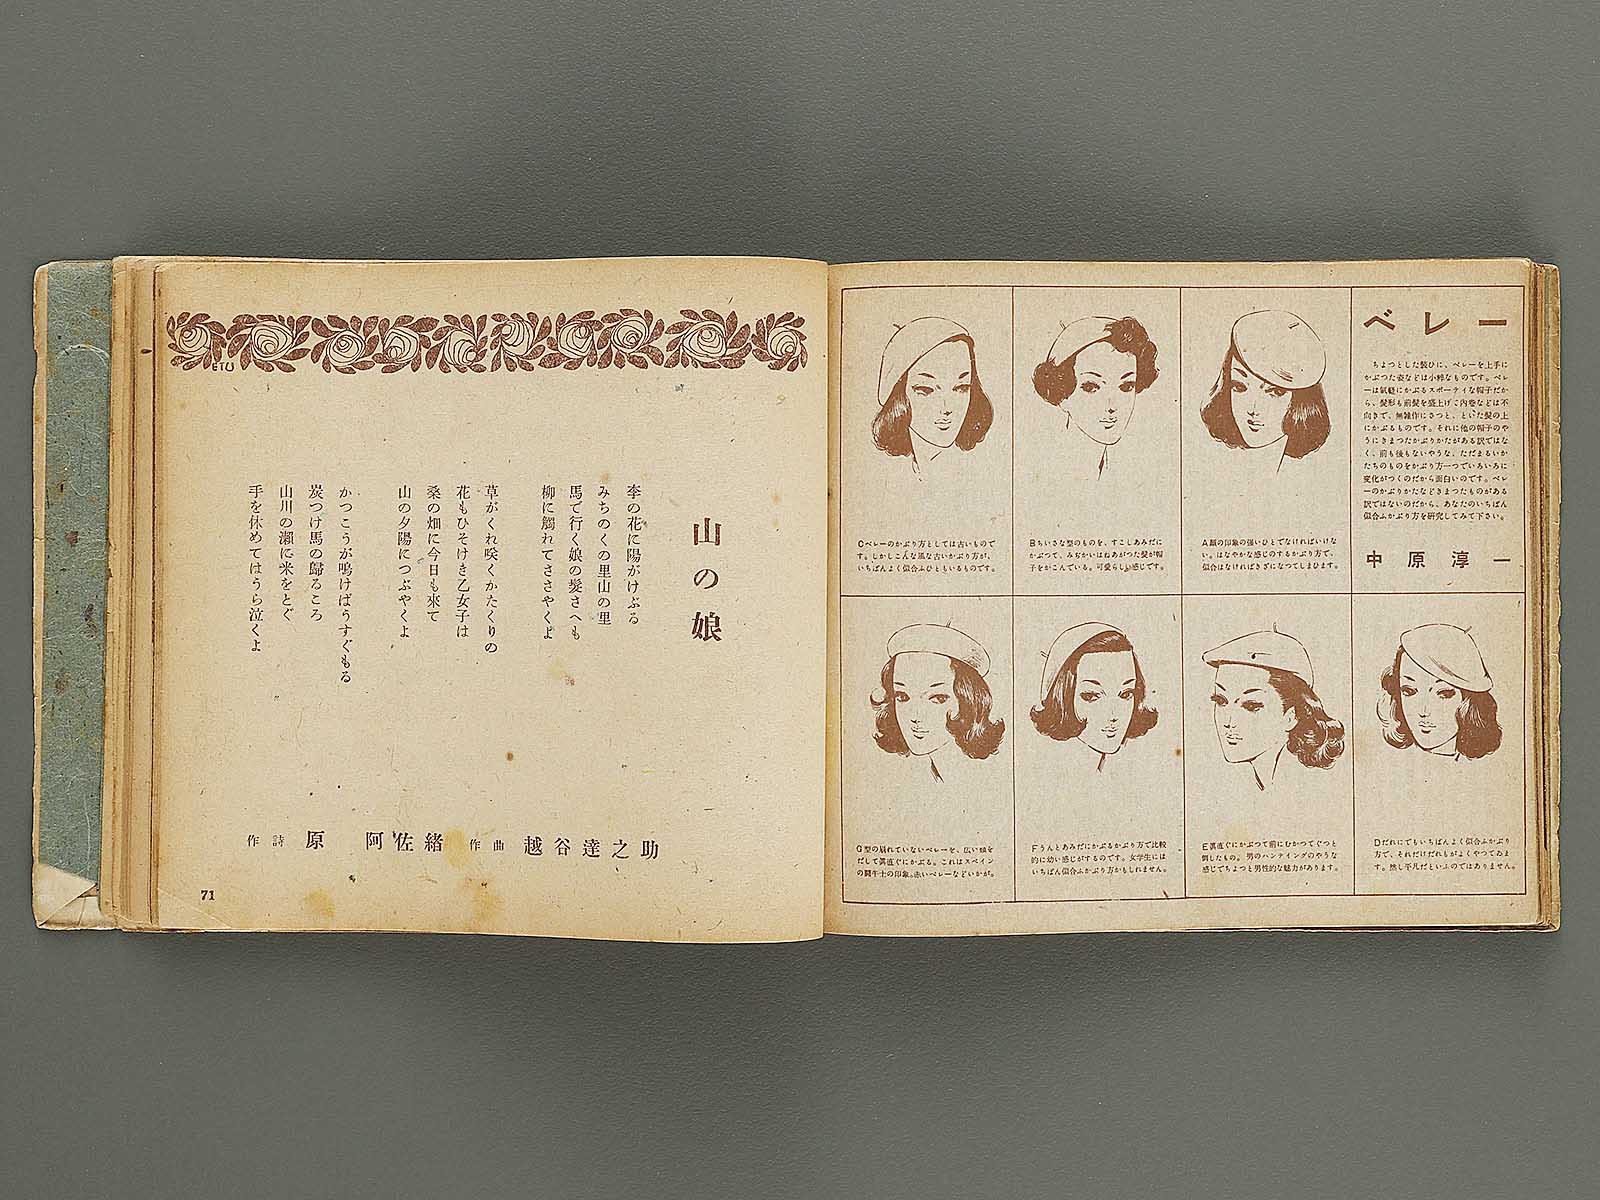 ベレー
ちょつとした裝ひに、ベレーを上手に
かぶつた姿などは小粹なものです。ベレ
ーは氣軽にかぶるスポーティな帽子だか
ら、髪形も前髪を盛上げて内巻などは不
向きで、無雑作にさつと、といた髪の上
にかぶるものです。それに他の帽子のや
うにきまつたかぶりかたがある訳ではな
く、前も後もないやうな、ただまるいか
たちのものをかぶり方一つでいろいろに
変化がつくのだから面白いのです。ベレ
ーのかぶりかたなどきまつたものがある
訳ではないのだから、あなたのいちばん
似合ふかぶり方を研究してみて下さい。
中原淳一
A顔の印象の强いひとでなければいけな
い。はなやかな感じのするかぶり方で、
似合はなければきざになつてしまひます。
Bちいさな型のものを、すこしあみだに
かぶつて、みぢかいはねあがつた髪が帽
子をかこんでいる。可愛らしい感じです。
Cベレーのかぶり方としては古いもので
す。しかしこんな風な古いかぶり方が、
いちばんよく似合ふひともいるものです。
Dだれにでもいちばんよく似合ふかぶり
方で、それだけだれもがよくやつてゐま
す。然し平凡だといふのではありません。
E眞直ぐにかぶつて前にひつかつてぐつと
倒したもの。男のハンティングのやうな
感じでちょつと男性的な魅力があります。
Fうんとあみだにかぶるかぶり方で比較
的に幼い感じがするのです。女学生には
いちばん似合ふかぶり方かもしれません。
G型の崩れていないベレーを、広い額を
だして眞直ぐにかぶる。これはスペイン
の闘牛士の印象。赤いベレーなどいかが。
ETU
山の娘
李の花に陽がけぶる
みちのくの里山の里
馬で行く娘の髪さへも
柳に觸れてささやくよ
草がくれ咲くかたくりの
花もひそけき乙女子は
桑の畑に今日も來て
山の夕陽につぶやくよ
かつこうが鳴けばうすぐもる
炭つけ馬の歸るころ
山川の瀨に米をとぐ
手を休めてはうら泣くよ
作詩 原 阿佐緒 作曲 越谷達之助
71